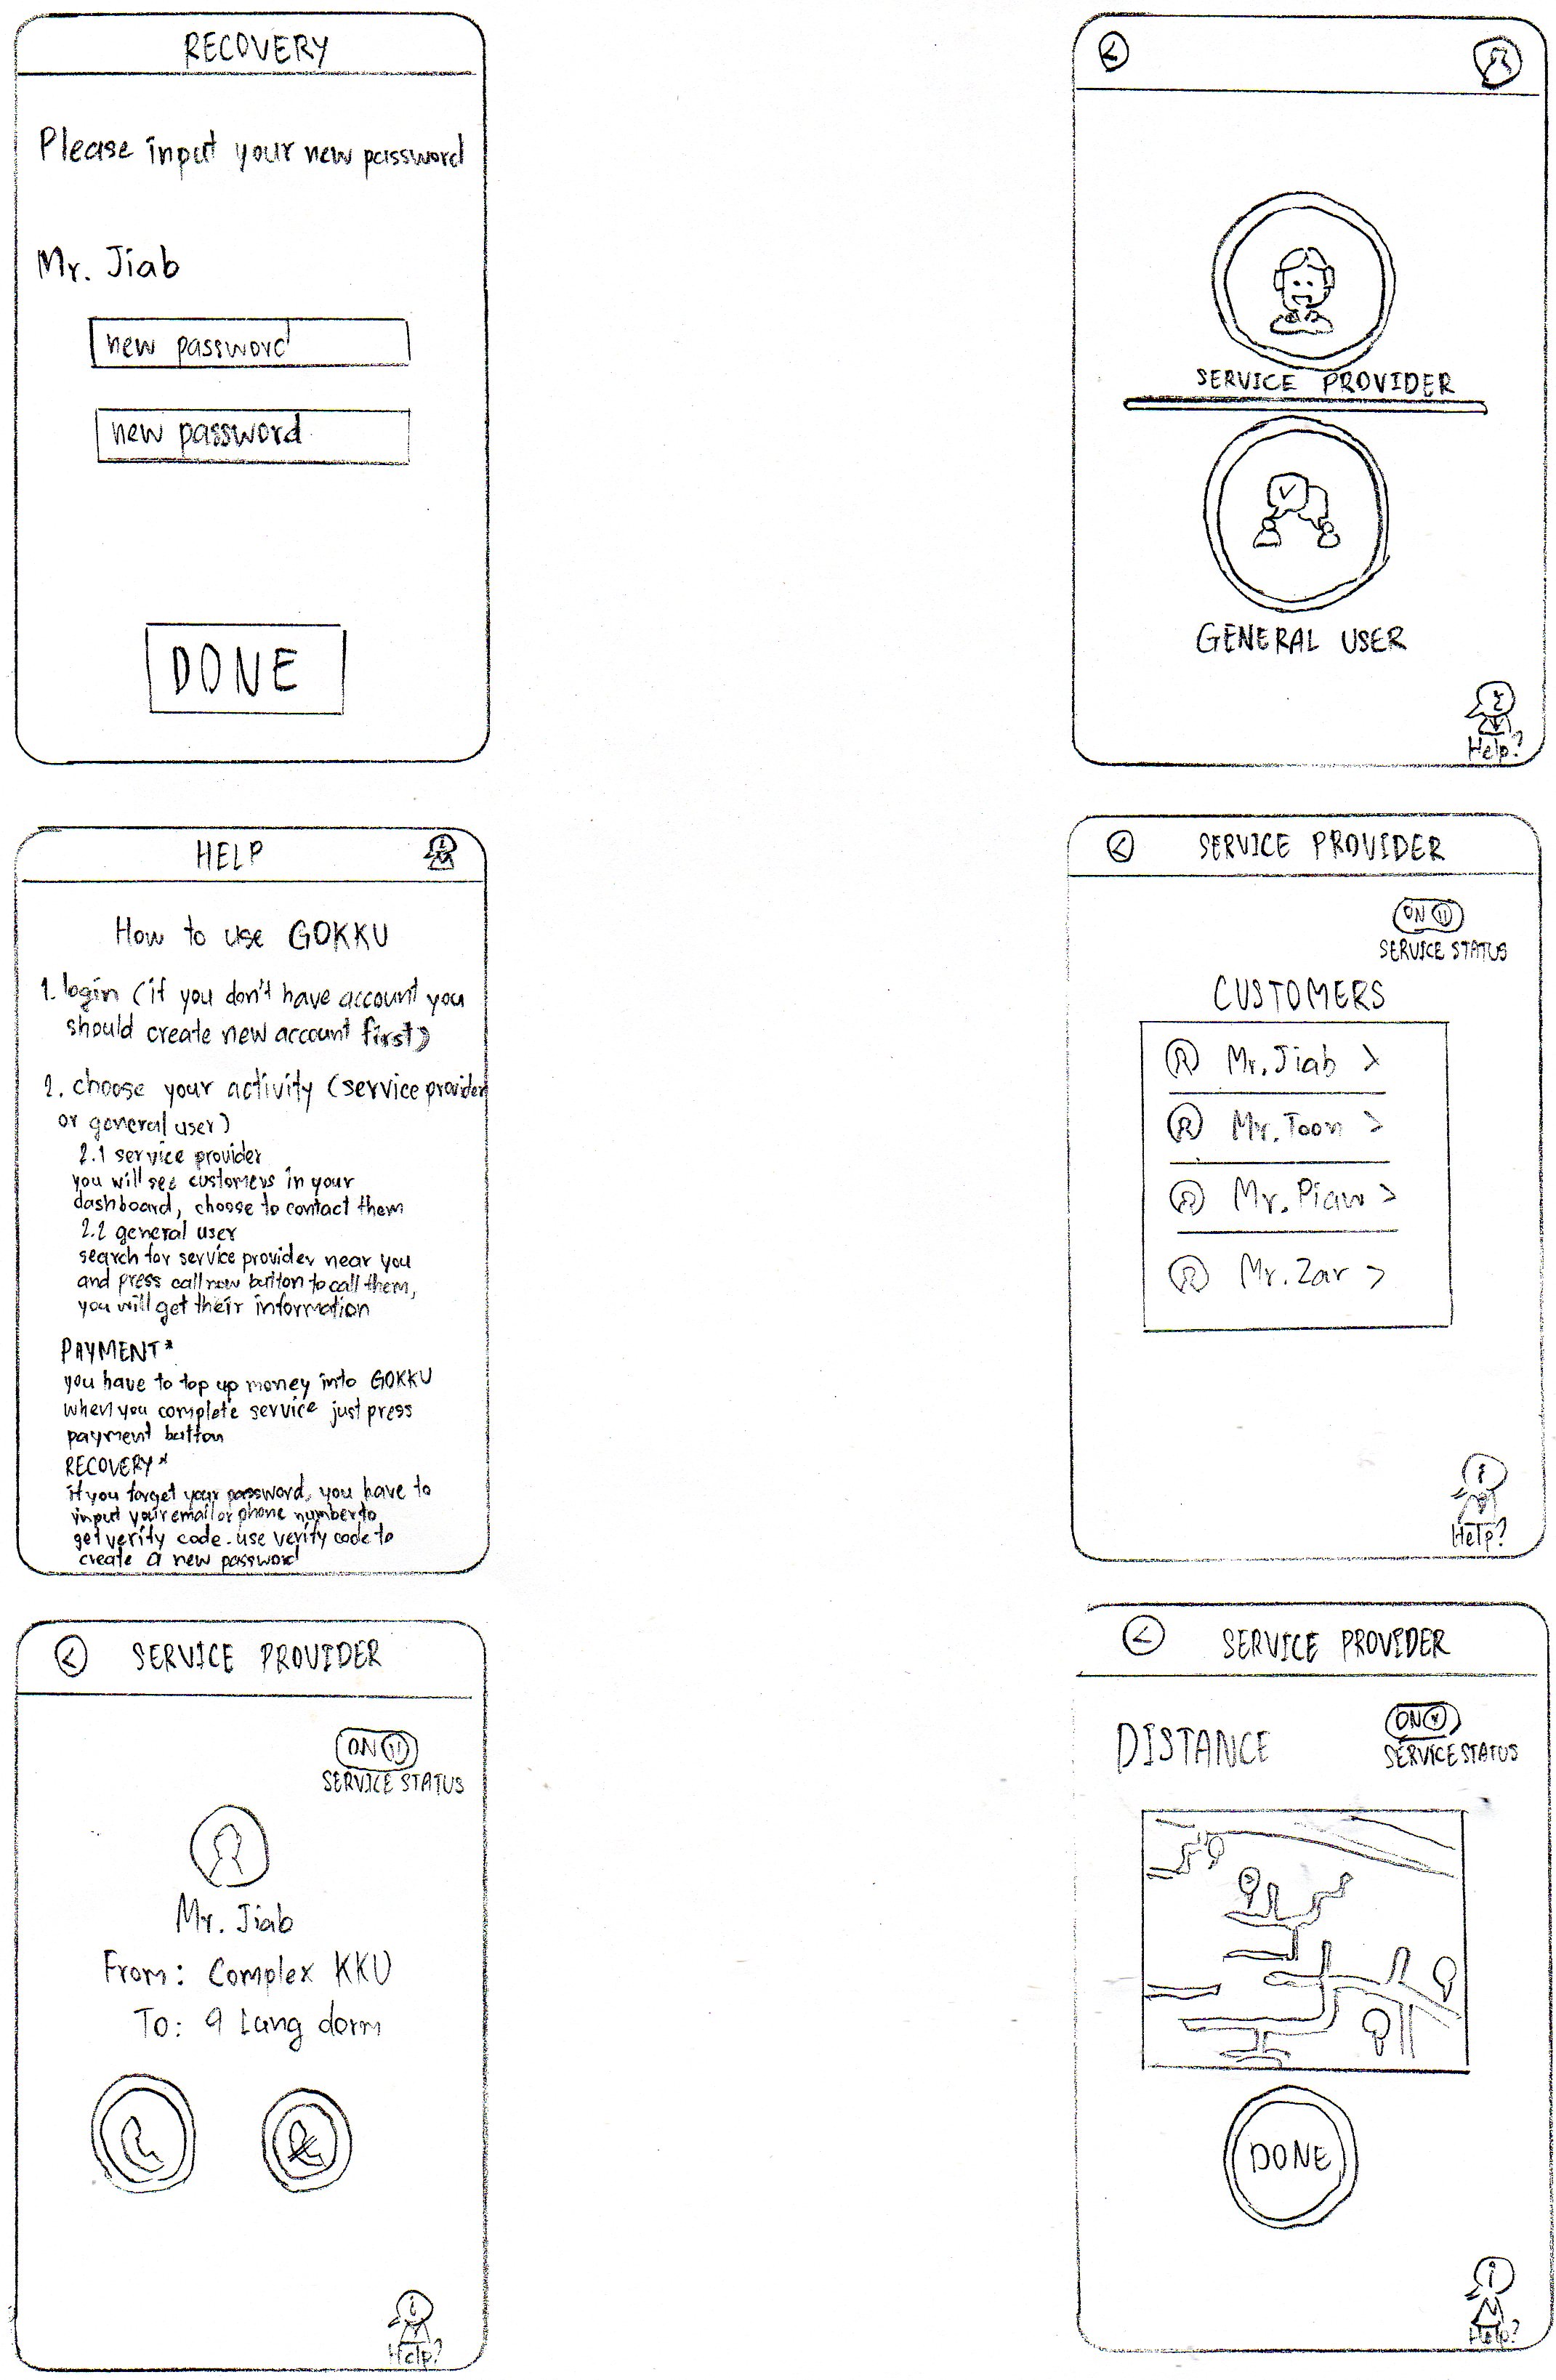 RECOVERY
Please input your new password
Mr. Jiab
new password
new password
DONE
SERVICE PROVIDER
GENERAL USER
Help?
HELP
How to use GOKKU
1. login (if you don't have account you
should create new account first)
2. choose your activity (service provider
or general user)
2.1 service provider
you will see customers in your
dashboard, choose to contact them
2.2 general user
search for service provider near you
and press call now button to call them,
you will get their information
PAYMENT*
you have to top up money into GOKKU
when you complete service just press
payment button
RECOVERY*
if you forget your password, you have to
input your email or phone number to
get verify code. use verify code to
create a new password
SERVICE PROVIDER
ON
SERVICE STATUS
CUSTOMERS
Mr. Jiab >
Mr. Toon >
Mr. Piaw >
Mr. Zar >
Help?
SERVICE PROVIDER
ON
SERVICE STATUS
Mr. Jiab
From: Complex KKU
To: 9 Lang dorm
Help?
SERVICE PROVIDER
DISTANCE
ON
SERVICE STATUS
DONE
Help?